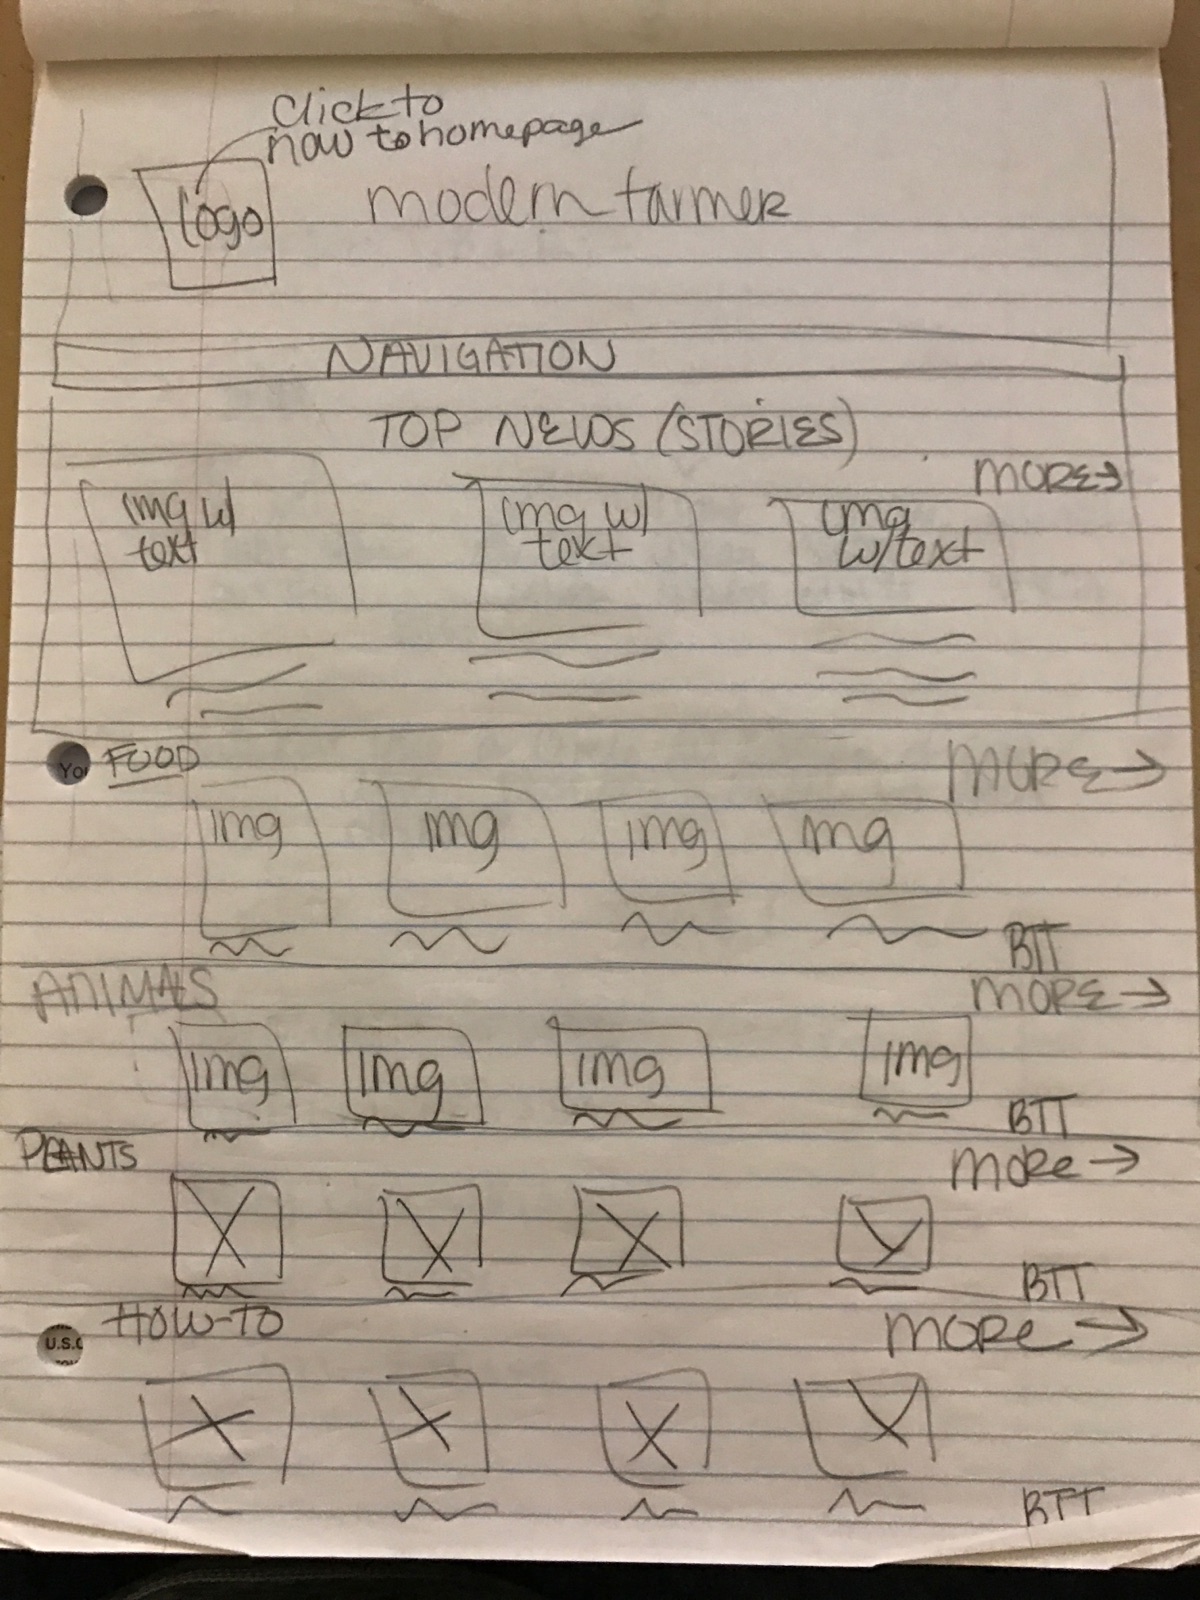 Click to
nav to homepage
Logo
modern farmer
NAVIGATION
TOP NEWS (STORIES)
MORE→
img w/
text
img w/
text
img
w/text
FOOD
MORE→
img
img
img
img
BTT
ANIMALS
MORE→
img
img
img
img
BTT
PLANTS
MORE→
BTT
HOW-TO
MORE→
BTT